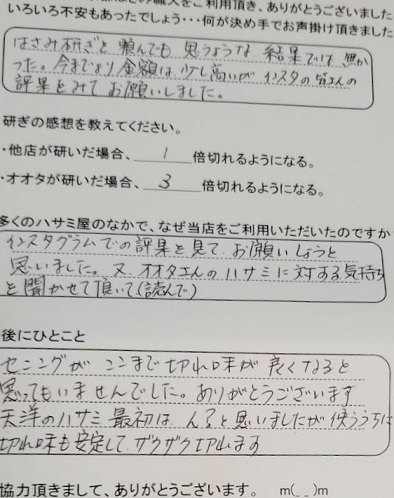 職人をご利用頂き、ありがとうございました
いろいろ不安もあったでしょう・・・何が決め手でお声掛け頂きました
はさみ研ぎを頼んでも思うような結果では無か
った。今までより金額は少し高いがインスタの皆さんの
評果をみてお願いしました。
研ぎの感想を教えてください。
・他店が研いだ場合、 1 倍切れるようになる。
・オオタが研いだ場合、 3 倍切れるようになる。
多くのハサミ屋のなかで、なぜ当店をご利用いただいたのですか
インスタグラムでの評果を見て、お願いしようと
思いました。又、オオタさんのハサミに対する気持ち
を聞かせて頂いて(読んで)
後にひとこと
セニングがここまで切れ味が良くなると
思ってもいませんでした。ありがとうございます
天洋のハサミ最初は、ん?と思いましたが使ううちに
切れ味も安定してザクザク切れます
協力頂きまして、ありがとうございます。 m(_ _)m